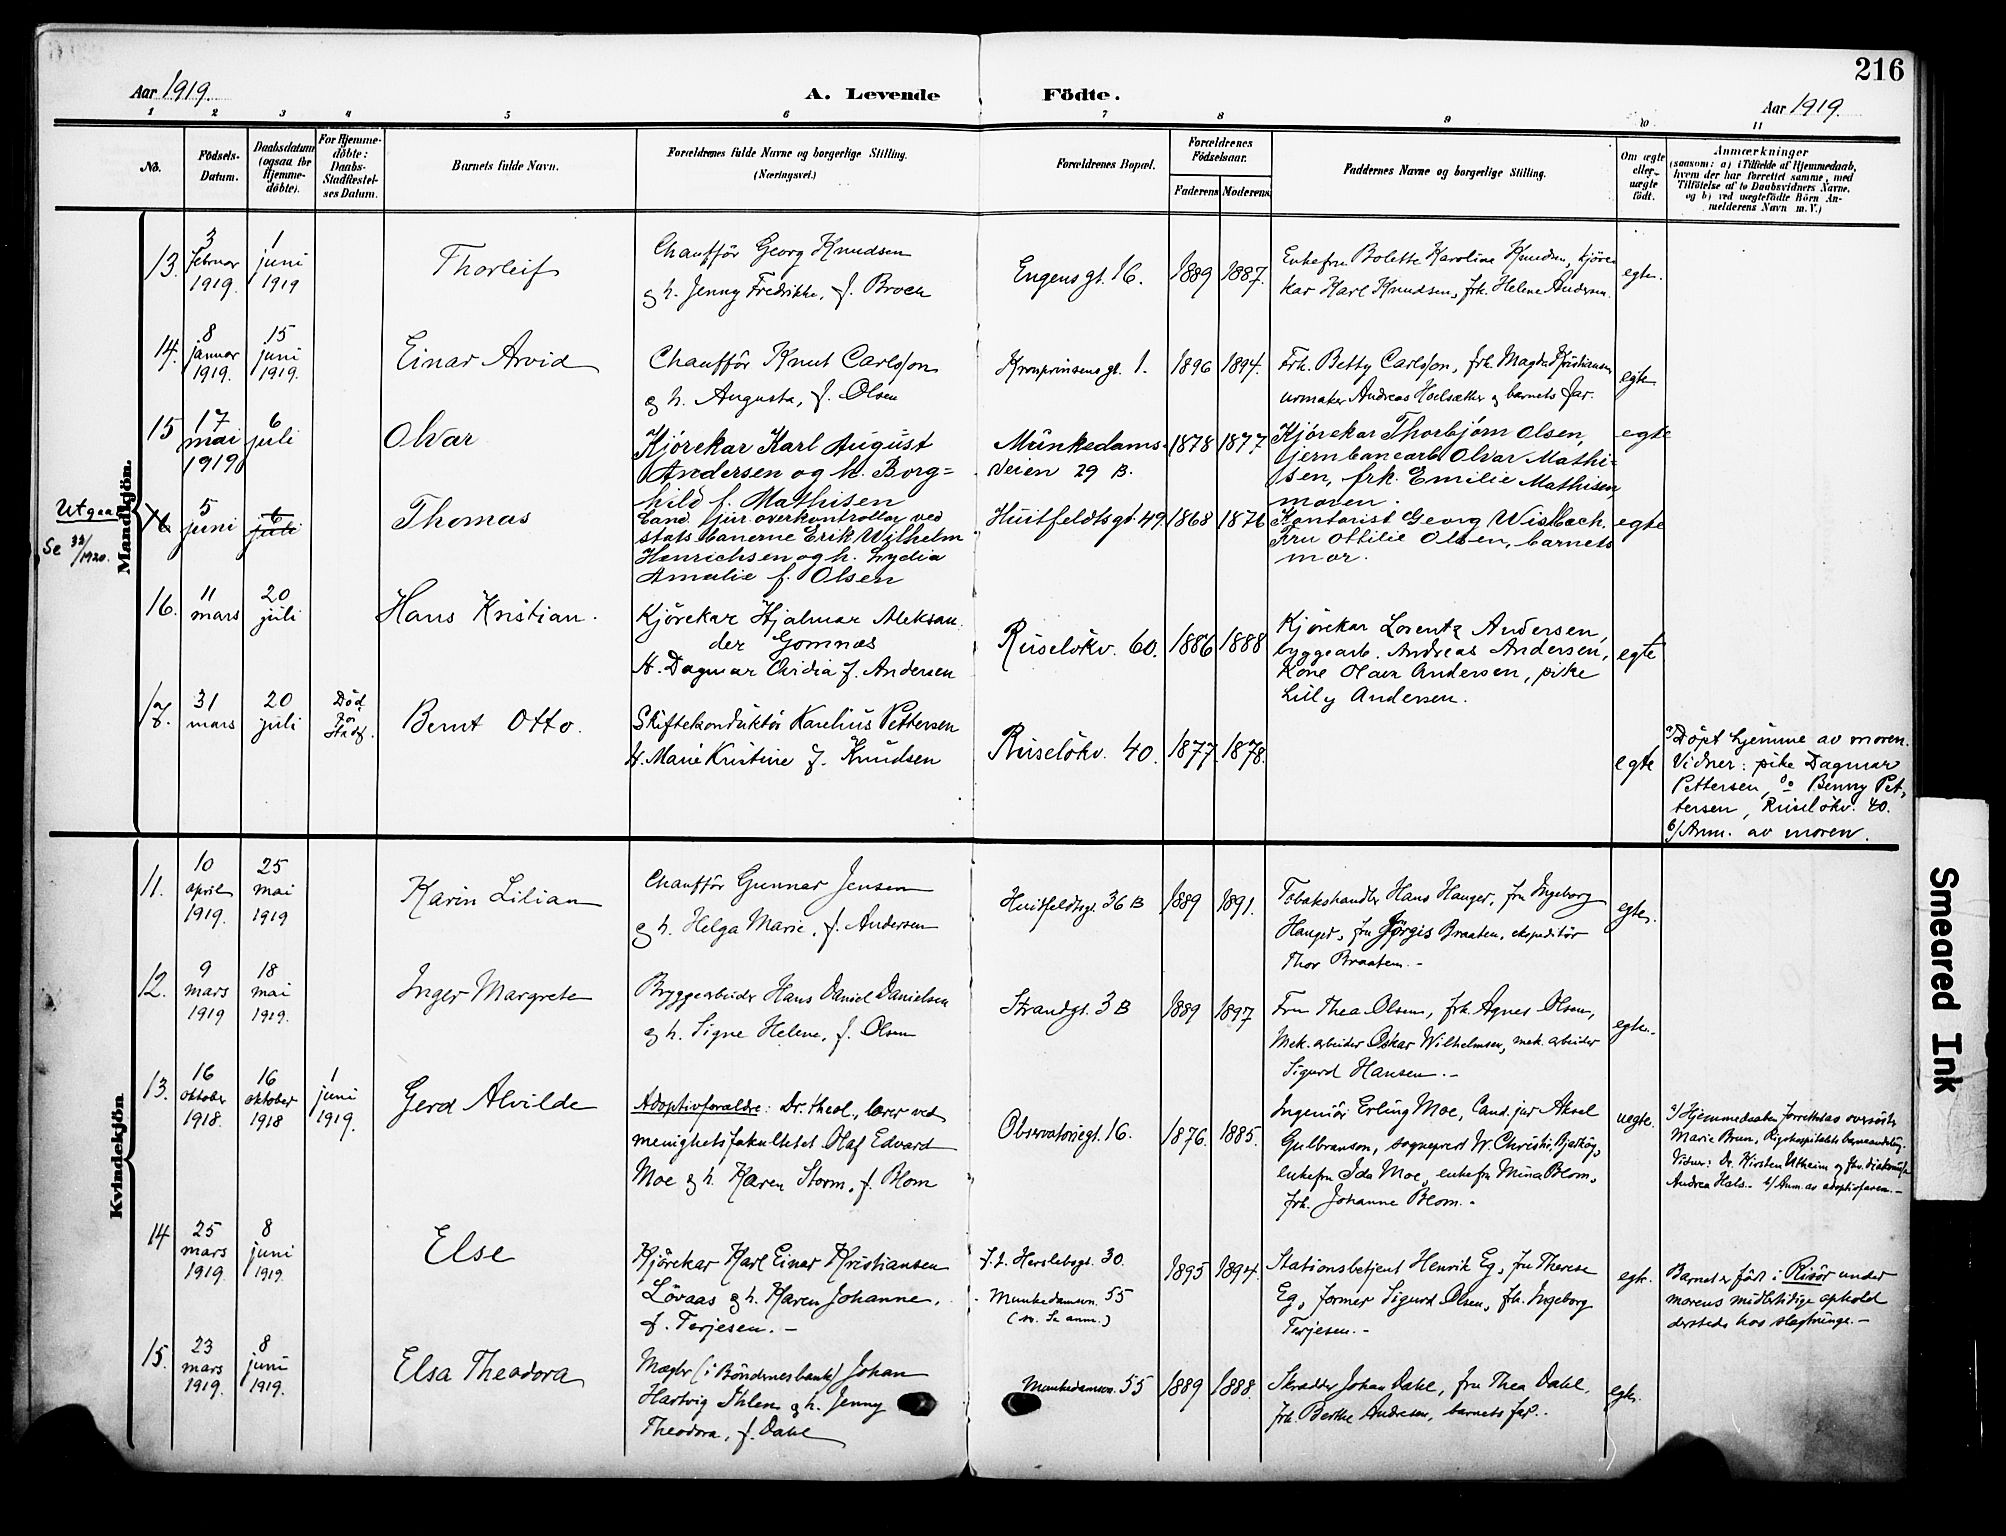 216
Aar 1919.
A. Levende Födte.
Aar 1919.
1 2 3 4 5 6 7 8 9 10 11
No.
Födsels-Datum.
Daabsdatum (ogsaa for Hjemme-döbte).
For Hjemme-döbte: Daabs-Stadfæstel-ses Datum.
Barnets fulde Navn.
Forældrenes fulde Navne og borgerlige Stilling.
(Næringsvei.)
Forældrenes Bopæl.
Forældrenes Födselsaar.
Faderens Moderens
Faddernes Navne og borgerlige Stilling.
Om ægte eller uægte födt.
Anmærkninger
(saasom: a) i Tilfælde af Hjemmedaab,
hvem der har forrettet samme, med
Tilföielse af to Daabsvidners Navne,
og b) ved uægtefödte Börn An-
melderens Navn m. V.)
Mandkjön.
13. 3 februar 1919. 1 juni 1919
Thorleif
Chaufför Georg Knudsen
og h. Jenny Fredrikke, f. Broch
Engens gt. 16. 1889 1887.
Enkefru Bolette Karoline Knudsen, kjöre-
kar Karl Knudsen, frk. Helene Andersen.
egte.
14. 8 januar 1919. 15 juni 1919.
Einar Arvid
Chaufför Knut Carlsson
og h. Augusta, f. Olsen
Kronprinsens gt. 1. 1896 1894.
Frk. Betty Carlsson, frk. Magda Kristiansen
urmaker Andreas Hoelsæther og barnets far.
egte
15 17 mai 1919 6 juli
Olvar
Kjörekar Karl August
Andersen og h. Borg=
hild f. Mathisen
Munkedams-
veien 29 B.
1878 1877.
Kjörekar Thorbjörn Olsen,
jernbanearb. Olvar Mathi=
sen, frk. Emilie Mathisen
moren.
egte
Utgaar
Se 33/1920.
16 5 juni 6 juli
Thomas
Cand. jur. overkontrollør ved
statsbanerne Erik Wilhelm
Henrichsen og h. Lydia
Amalie f. Olsen
Huitfeldtsgt. 49. 1868 1876
Kontorist Georg Wisbech.
Fru Ottilie Olsen, barnets
mor.
egte
16. 11 mars 20 juli
Hans Kristian.
Kjörekar Hjalmar Aleksan
der Gomnæs
H. Dagmar Ovidia f. Andersen
Ruselökv. 60. 1886 1888
Kjörekar Lorentz Andersen,
byggearb. Andreas Andersen,
Kone Olava Andersen, pike
Lilly Andersen.
egte
17. 31 mars 20 juli Död för Stadf.
Bernt Otto.
Skiftekonduktör Karelius Pettersen
H. Marie Kristine f. Knudsen
Ruselökv. 40. 1877. 1878.
egte
a) Döpt hjemme av moren.
Vidner: pike Dagmar
Pettersen, do Benny Pet-
tersen, Ruselökv. 40.
b/ Anm. av moren.
Kvindekjön
11. 10 april 1919. 25 mai 1919
Karin Lilian
Chaufför Gunnar Jensen
og h. Helga Marie, f. Andersen
Huitfeldtsgt. 36 B 1889 1891.
Tobakshandler Hans Hanger, fru Ingeborg
Hanger, fru Jörgis Braaten, ekspeditör
Thor Braaten.-
egte.
12. 9 mars 1919 18 mai 1919.
Inger Margrete
Bryggearbeider Hans Daniel Danielsen
og h. Signe Helene, f. Olsen
Strandgt. 3 B 1889 1897
Fru Thea Olsen, frk. Agnes Olsen,
Mek. arbeider Oskar Wilhelmsen, mek. arbeider
Sigurd Hansen.-
egte.
13. 16 oktober 1918. 16 oktober 1918 1 juni 1919.
Gerd Alvilde
Adoptivforældre: Dr. theol., lærer ved
menighetsfakultetet Olaf Edvard
Moe og h. Karen Storm, f. Blom
Observatoriegt. 16. 1876. 1885.
Ingeniör Erling Moe, Cand. jur Aksel
Gulbranson, sogneprest W. Christie, Bjarköy,
enkefru Ida Moe, enkefru Mina Blom,
frk. Johanne Blom.-
uegte.
a/ Hjemmedaaben forrettedes av oversöster
Marie Brun, Rigshospitalets barneavdeling.
Vidner: Dr. Kirsten Utheim og
Andrea Hals. b/ Anm. av adoptivfaren.-
14 25 mars 1919. 8 juni 1919.
Else
Kjörekar Karl Einar Kristiansen
Lövaas og h. Karen Johanne,
f. Terjesen.-
Herslebsgt. 30.
Munkedamsvn. 55
1895 1894.
Stationsbetjent Henrik Eg, fru Therese
Eg, former Sigurd Olsen, frk. Ingeborg
Terjesen.-
egte.
Barnet er födt i Risör under
morens midlertidige ophold
dersteds hos slegtninge.-
15. 23 mars 1919. 8 juni 1919.
Elsa Theodora
Mægler (i Böndernes bank) Johan
Hartvig Ihlen og h. Jenny
Theodora, f. Dahl
Munkedamsvn. 55 1889 1888.
Skrædder Johan Dahl, fru Thea Dahl,
frk. Berthe Andresen, barnets far.
egte.
Smeared Ink